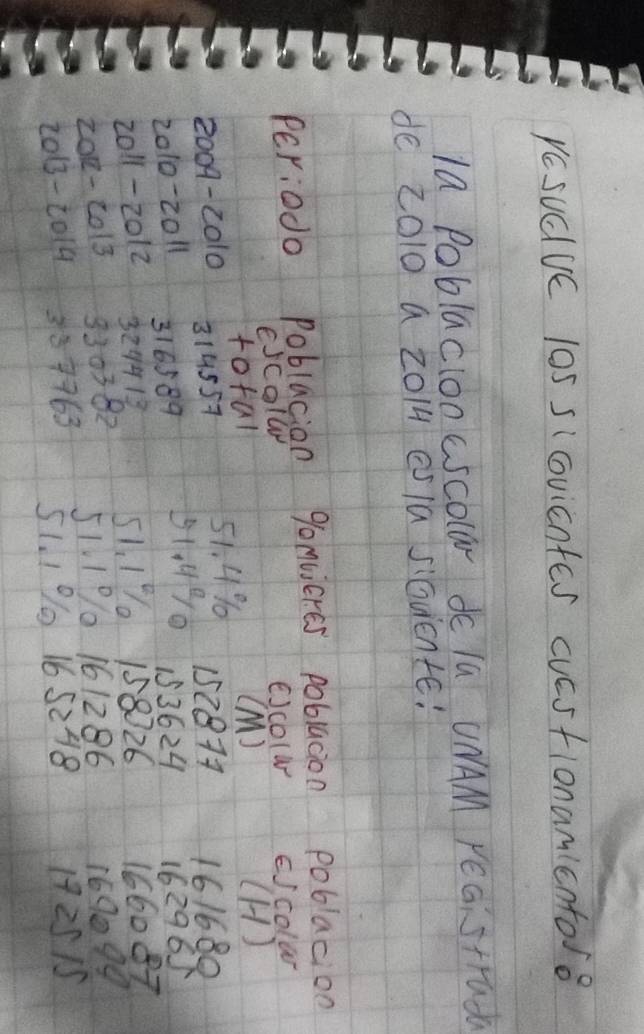 resuelve los siguientes cuestionamientos:
la Poblacion escolar de la UNAM registrad
de 2010 a 2014 es la siguiente:
Periodo Poblacion escolar total %Mujeres poblacion escolar (M) poblacion escolar (H)
2009-2010 314557 51.4% 152877 161680
2010-2011 316589 51.4% 153624 162965
2011-2012 324413 51.1% 158326 166087
2012-2013 330382 51.1% 161286 169099
2013-2014 337763 51.1% 165248 172515